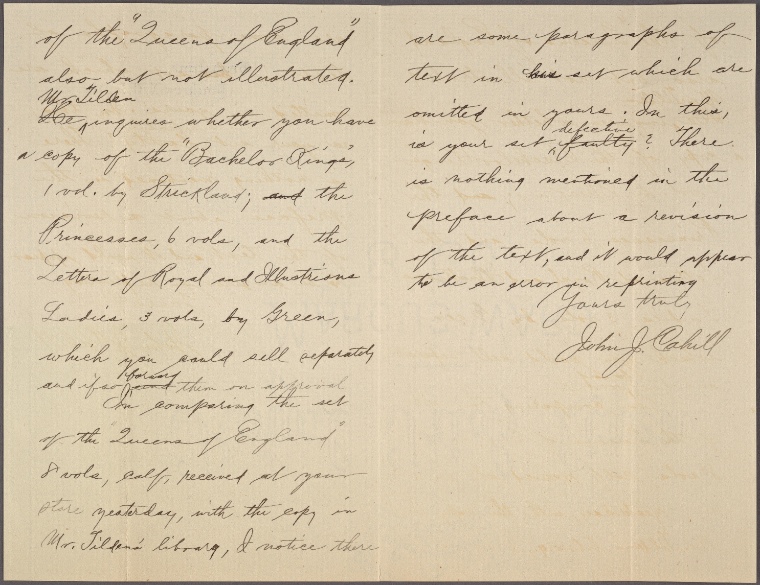 of the "Queens of England"
also but not illustrated.
Mr. Tilden
He inquires whether you have
a copy of the "Bachelor Kings",
1 vol. by Strickland; and the
Princesses, 6 vols, and the
Letters of Royal and Illustrious
Ladies, 3 vols, by Green,
which you could sell separately
forward
and if so send them on approval
In comparing the set
of the "Queens of England"
8 vols, calf, received at your
store yesterday, with the copy in
Mr. Tilden's library, I notice there
are some paragraphs of
text in his set which are
omitted in yours. In this,
defective
is your set faulty? There
is nothing mentioned in the
preface about a revision
of the text, and it would appear
to be an error in reprinting
Yours truly
John J. Cahill